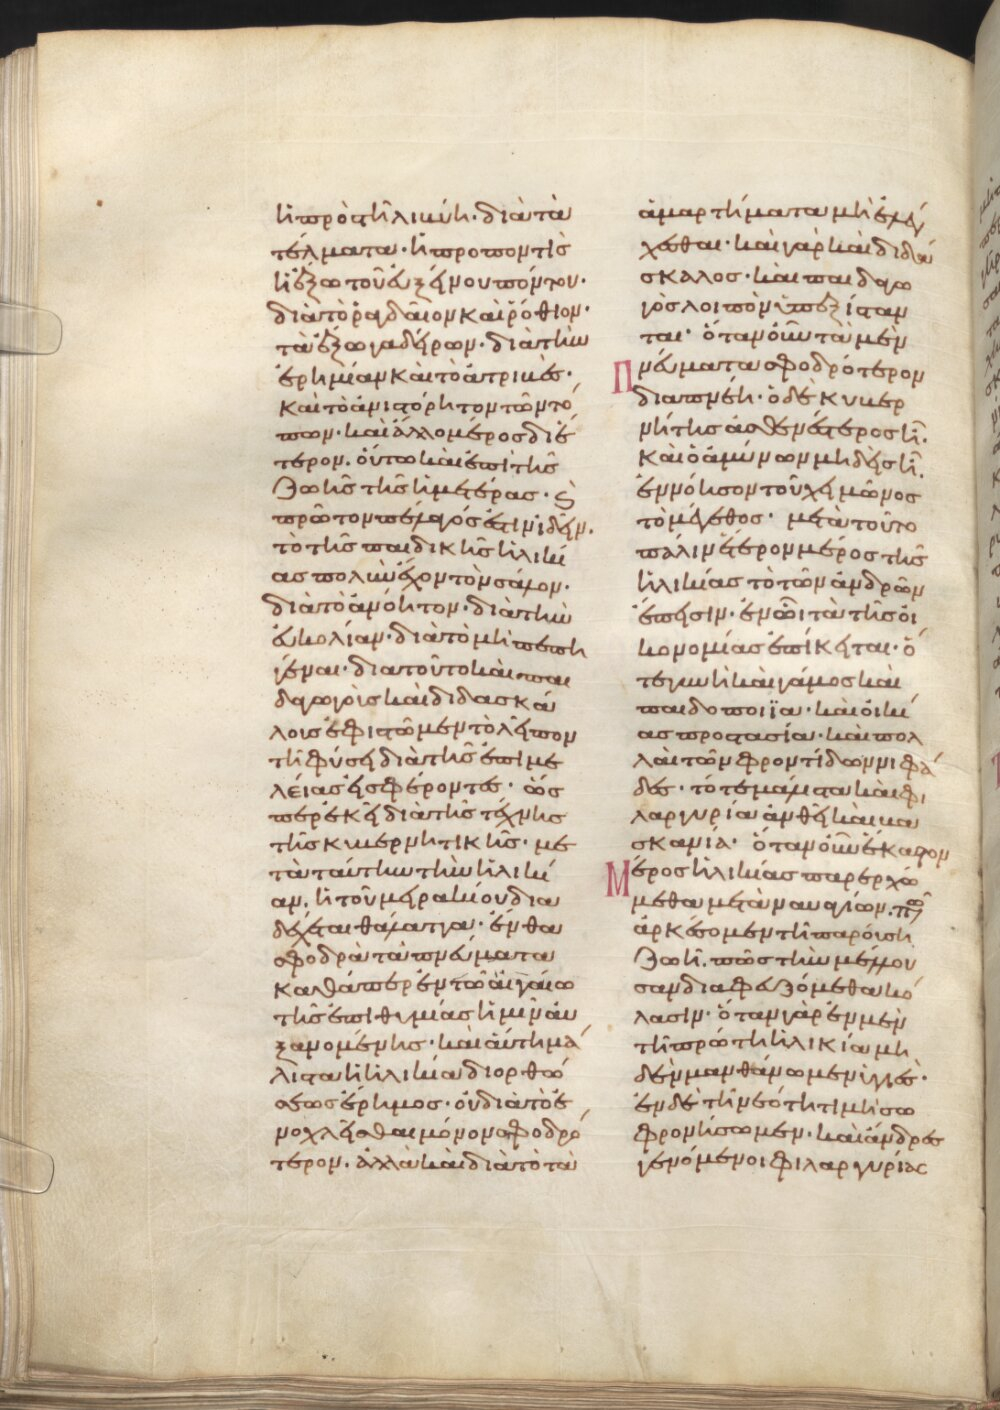 ἢ πρὸς τῆ λίμνη· διὰ τὰ
τέλματα· ἢ προποντὶς
ἢ ἔξω τοῦ ἐυξείνου πόντου·
διὰ τὸ ῥαγδαῖον καὶ ῥόθιον·
τὰ ἔξω γαδείρων· διὰ τὴν
ἐρημίαν καὶ τὸ ἀτριβὲς·
καὶ τὸ ἀνιστόρητον τῶν τό
πων· καὶ ἄλλο μέρος δι ἕ
τερον. οὕτω καὶ ἐπὶ τῆς
ζωῆς τῆς ἡμετέρας· ϗ
πρῶτον πέλαγός ἐστιν ἰδεῖν.
τὸ τῆς παιδικῆς ἡλικί
ας πολὺν ἔχον τὸν σάλον·
διὰ τὸ ἀνόητον· διὰ τὴν
ἐυκολίαν· διὰ τὸ μὴ πεπη
γέναι· διατοῦτο καὶ παι
δαγωγοῖς καὶ διδασκά
λοις ἐφιστῶμεν τὸ λεῖπον
τῆ φύσει διὰ τῆς ἐπιμε
λείας εἰσφέροντες· ὥσ
περ ἐκεῖ διὰ τῆς τέχνης
τῆς κυβερνητικῆς· με
τὰ ταύτην τὴν ἡλικί
αν. ἡ τοῦ μειρακίου δια
δέχεται θάλαττα· ἔνθα
σφοδρὰ τὰ πνεύματα
καθάπερ ἐν τῶ ἀιγαίω
τῆς ἐπιθυμίας ἡμῖν ἀυ
ξανομένης· καὶ ἄυτη μά
λιστα ἡ ἡλικία διορθώ
σεως ἔρημος· οὐ διὰ τὸ ἐ
νοχλεῖσθαι μόνον σφοδρό
τερον. ἀλλὰ καὶ διὰ τὸ τὰ
ἁμαρτήματα μὴ ἐλέγ
χεσθαι· καὶ γὰρ καὶ διδά
σκαλος· καὶ παιδαγω
γὸς λοιπὸν ὑπεξίσταν
ται· ὅταν οὖν τὰ μὲν
πνεύματα σφοδρότερον
διαπνέη· ὁ δὲ κυβερ
νήτης ἀσθενέστερος ἦ.
καὶ ὁ ἀμύνων μηδεὶς ἦ.
ἐννόησον τοῦ χειμῶνος
τὸ μέγεθος· μετὰ τοῦτο
πάλιν ἕτερον μέρος τῆς
ἡλικίας τὸ τῶν ἀνδρῶν
ἔπεισιν· ἐν ὧ τὰ τῆς οἰ
κονομίας ἐπίκειται· ὅ
τε γυνὴ καὶ γάμος καὶ
παιδοποιΐα· καὶ οἰκί
ας προστασία· καὶ πολ
λαὶ τῶν φροντίδων νιφά
δες· τότε μάλιστα καὶ φι
λαργυρία ἀνθεῖ καὶ βα
σκανία· ὅταν οὖν ἕκαστον
μέρος ἡλικίας παρερχώ
μεθα μετὰ ναυαγίων. πῶς
ἀρκέσομεν τῆ παρούση
ζωῆ. πῶς τὴν μέλλου
σαν διαφευξόμεθα κό
λασιν· ὅταν γὰρ ἐν μὲν
τῆ πρώτη ἡλικία μη
δὲν μανθάνωμεν ὑγιὲς·
ἐν δὲ τῆ νεότητι μὴ σω
φρονήσωμεν· καὶ ἄνδρες
γενόμενοι φιλαργυρίας